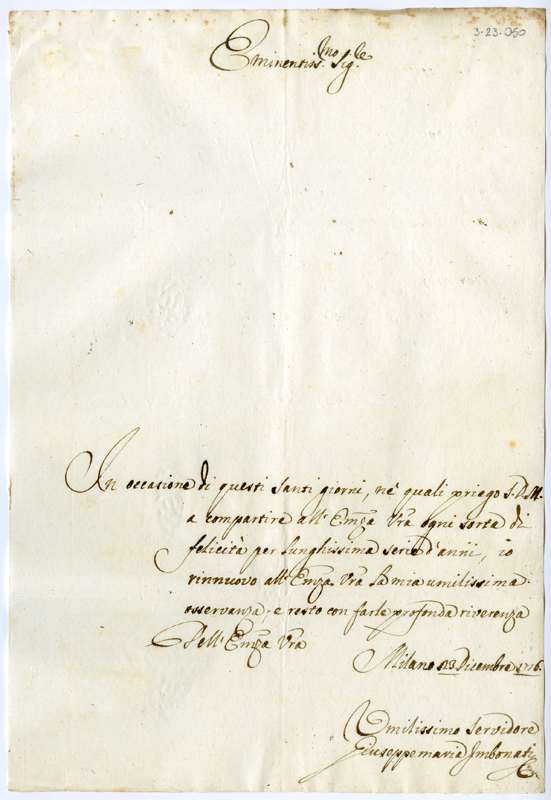 3-23-050
Eminentiss.mo Sig.re
In occasione di questi santi giorni, ne' quali priego S.D.M.
a compartire all' Emza Vra ogni sorta di
felicità per lunghissima serie d'annii, io
rinnuovo all' Emza Vra la mia umilissima
osservanza, e resto con farle profonda riverenza
Dell' Emza Vra
Milano 23 Dicembre 1716.
Umilissimo Servidore
Giuseppemaria Imbonati